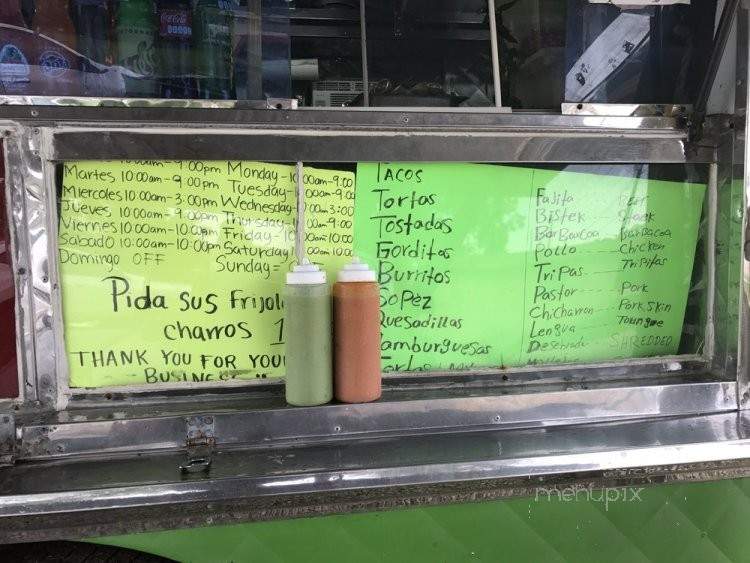 Coca-Cola
10:00am - 9:00pm Monday - 10:00am - 9:00
Martes 10:00am - 9:00pm Tuesday - 00am - 9:00
Miercoles 10:00am - 3:00pm Wednesday 00am - 3:00
Jueves 10:00am - 9:00pm Thursday 00am - 9:00
Viernes 10:00am - 10:00pm Friday - 10:00am - 10:00
Sabado 10:00am - 10:00pm Saturday 00am 10:00
Domingo OFF Sunday =
Pida sus Frijol
charros 1
THANK YOU FOR YOU
BUSINESS
TACOS
Tortas
Tostadas
Gorditas
Burritos
Sopez
Quesadillas
amburguesas
Fajita Beef
Bistek Steak
BarBacoa BarBacoa
Pollo Chicken
Tripas Tripitas
Pastor Pork
Chicharron Pork Skin
Lengua Toungue
Desebrada SHREDDED
menupix